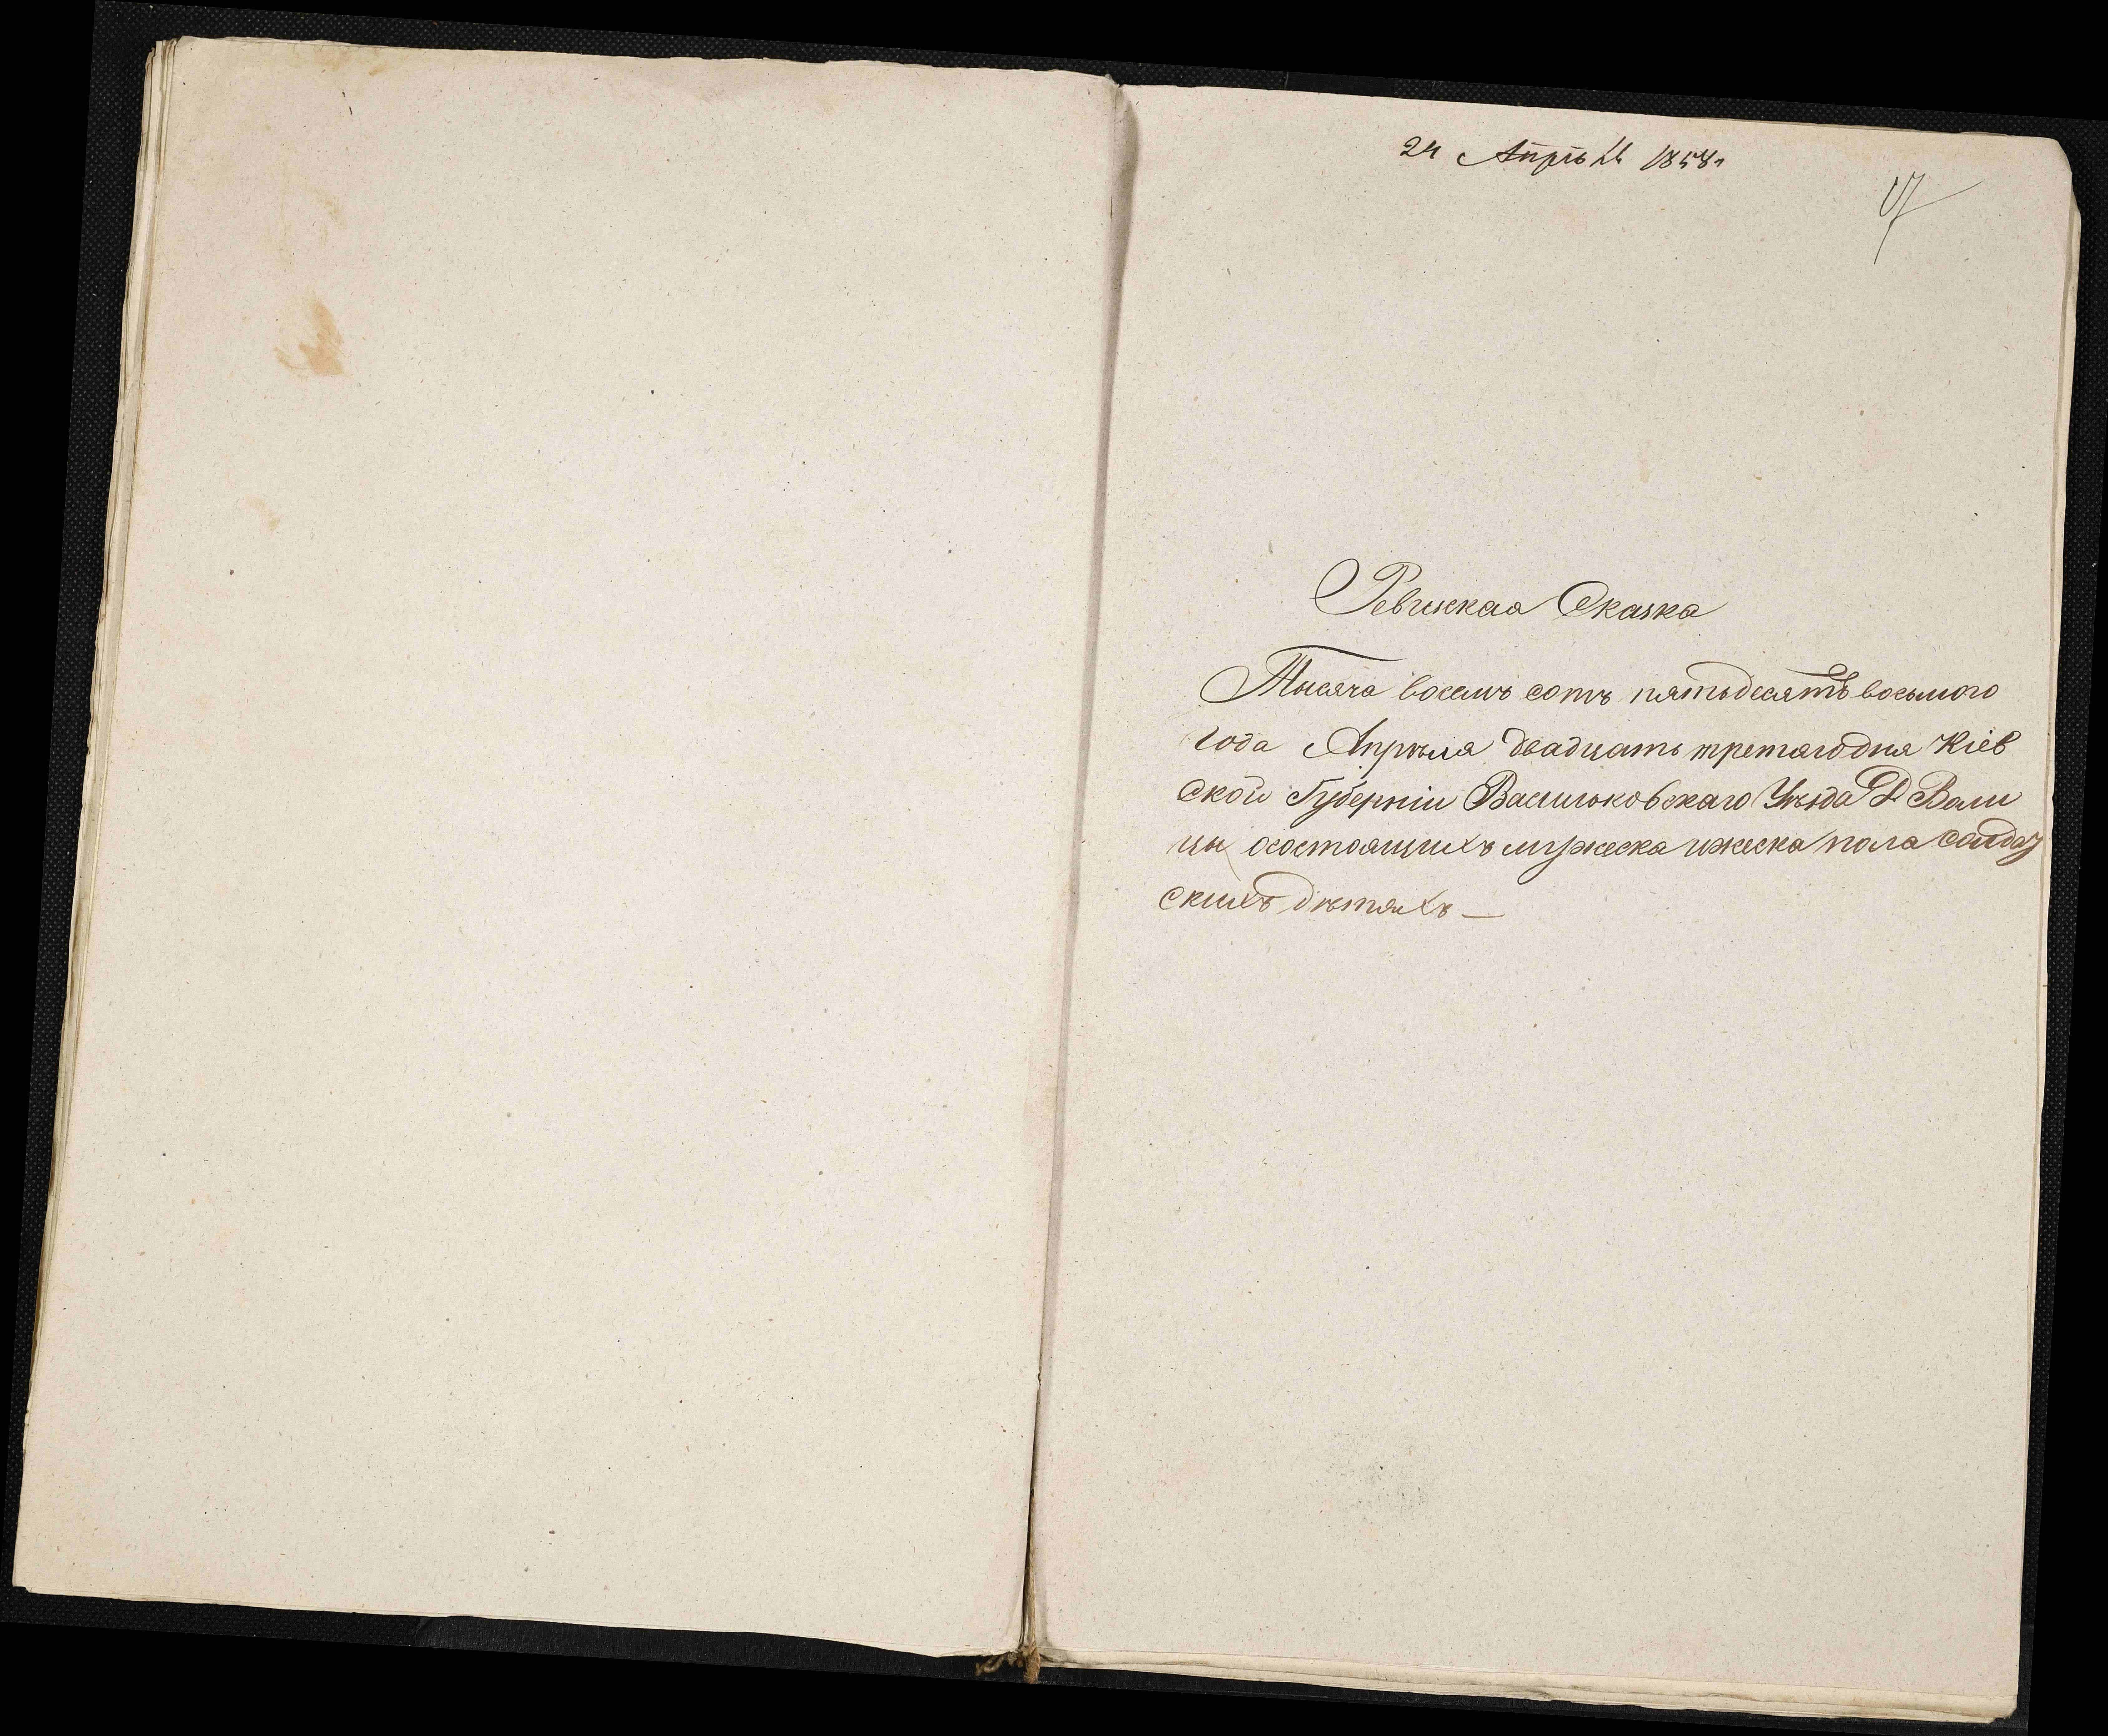 24 Апрѣля 1858 г.
Ревижкая Сказка
Тысяча восемъ сотъ пятьдесятъ восьмого
года Апрѣля двадцать третягодня Кіев
ской Губерніи Васильковскаго Уѣзда Д Вали
цы осостоящихъ мужеска ижеска пола солдат
скихъ дѣтяхъ —